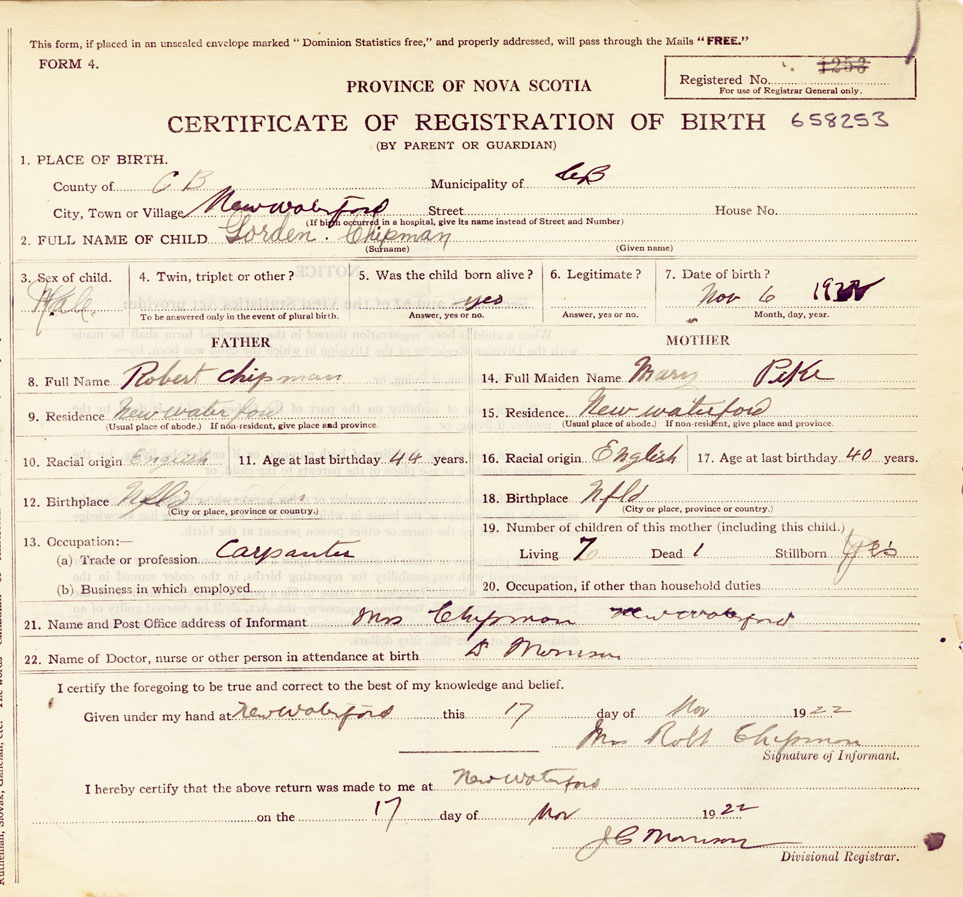 This form, if placed in an unsealed envelope marked " Dominion Statistics free," and properly addressed, will pass through the Mails "FREE."
FORM 4.
Registered No. 1253
For use of Registrar General only.
PROVINCE OF NOVA SCOTIA
CERTIFICATE OF REGISTRATION OF BIRTH 658253
(BY PARENT OR GUARDIAN)
1. PLACE OF BIRTH.
County of C B Municipality of CB
City, Town or Village New Waterford Street House No.
(If birth occurred in a hospital, give its name instead of Street and Number)
2. FULL NAME OF CHILD Gorden. Chipman
(Surname) (Given name)
3. Sex of child. 4. Twin, triplet or other? 5. Was the child born alive? 6. Legitimate? 7. Date of birth?
Male. yes Nov 6 1922
To be answered only in the event of plural birth. Answer, yes or no. Answer, yes or no. Month, day, year.
FATHER MOTHER
8. Full Name Robert Chipman 14. Full Maiden Name Mary Pike
9. Residence New waterford 15. Residence. New waterford
(Usual place of abode.) If non-resident, give place and province. (Usual place of abode.) If non-resident, give place and province.
10. Racial origin English 11. Age at last birthday 44 years. 16. Racial origin English 17. Age at last birthday 40 years.
12. Birthplace Nfld 18. Birthplace Nfld
(City or place, province or country.) (City or place, province or country.)
19. Number of children of this mother (including this child.)
13. Occupation:—
(a) Trade or profession Carpanter Living 7 Dead 1 Stillborn
(b) Business in which employed 20. Occupation, if other than household duties
21. Name and Post Office address of Informant Mrs Chipman New Waterford
22. Name of Doctor, nurse or other person in attendance at birth Dr Morrison
I certify the foregoing to be true and correct to the best of my knowledge and belief.
Given under my hand at New Waterford this 17 day of Nov 1922
Mrs Robt Chipman
Signature of Informant.
I hereby certify that the above return was made to me at New Waterford
on the 17 day of Nov 1922
J C Morrison
Divisional Registrar.